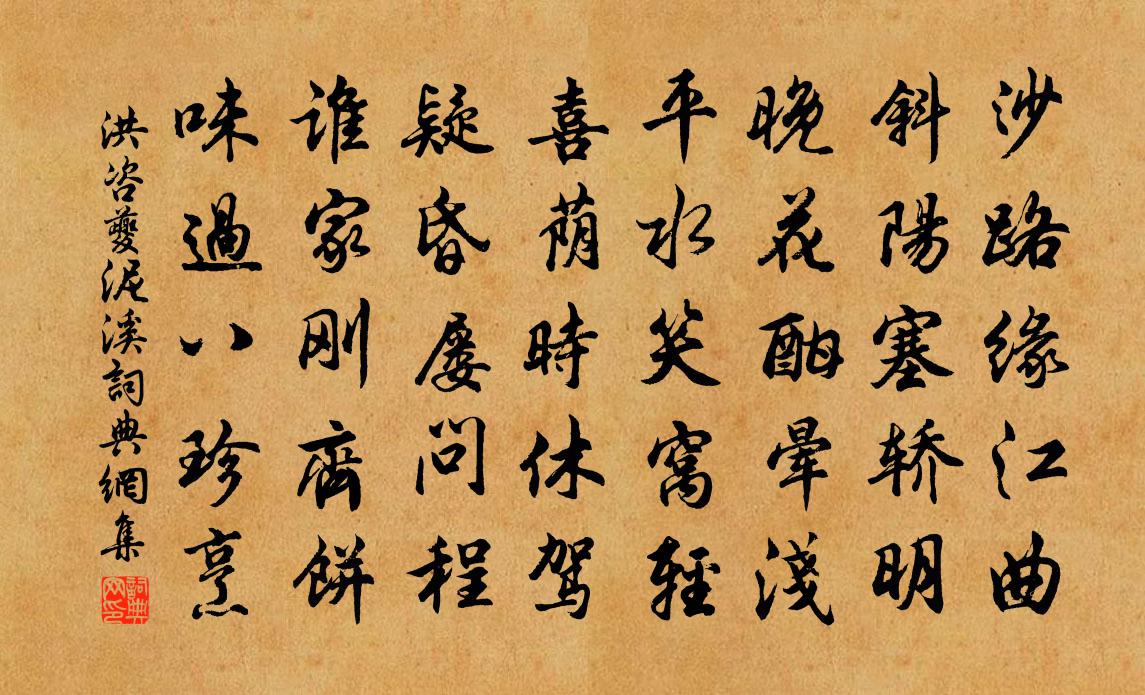 沙路缘江曲
斜陽塞轿明
晚花酣晕淺
平水笑窝輕
喜荫時休驾
疑昏屡问程
谁家刚齊餅
味過八珍烹
洪咨夔泥溪詞典網集
詞典网印